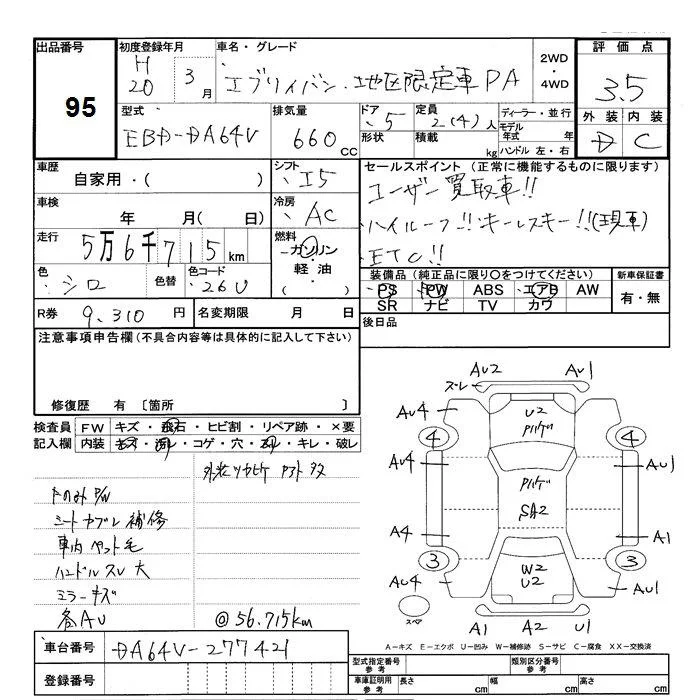 出品番号
95
初度登録年月
H
20 3 月
車名・グレード
エブリィバン・地区限定車 PA
2WD
・
4WD
評価点
3.5
外装 内装
D C
型式
EBD-DA64V
排気量
660 CC
ドア
5
形状
定員
2(4) 人
積載
kg
ディーラー・並行
モデル
年式 年
ハンドル 左・右
車歴
自家用・( )
シフト
I5
車検
年 月( 日)
冷房
AC
走行
5万6千715km
燃料
ガソリン
軽油・
( )
色
シロ
色替
色コード
26U
R券 9,310 円
名変期限 月 日
セールスポイント(正常に機能するものに限ります)
ユーザー買取車!!
ハイルーフ!!キーレスキー!!(現車)
ETC!!
装備品(純正品に限り○をつけてください)
PS PW ABS エアB AW
SR ナビ TV カワ
新車保証書
有・無
後日品
注意事項申告欄(不具合内容等は具体的に記入して下さい)
修復歴 有 〔箇所 〕
検査員
記入欄
FW キズ・飛石・ヒビ割・リペア跡・×要
内装 キズ・汚レ・コゲ・穴・・キレ・破レ
P/W
シート 補修
車内ペット毛
ハンドルスレ大
ミラーキズ
各AU
@56.715km
車台番号 DA64V-277421
登録番号
AU2 AU1
ズレ
AU4
U2
4 4
AU4 AU1
SA2
A4 A1
3 3
W2
U2
AU4 AU1
スペア
A1 A2 U1
A-キズ E-エクボ U-凹み W-補修跡 S-サビ C-腐食 XX-交換済
型式指定番号
参考
類別区分番号
参考
車庫証明用
参考
長さ cm 幅 cm 高さ cm